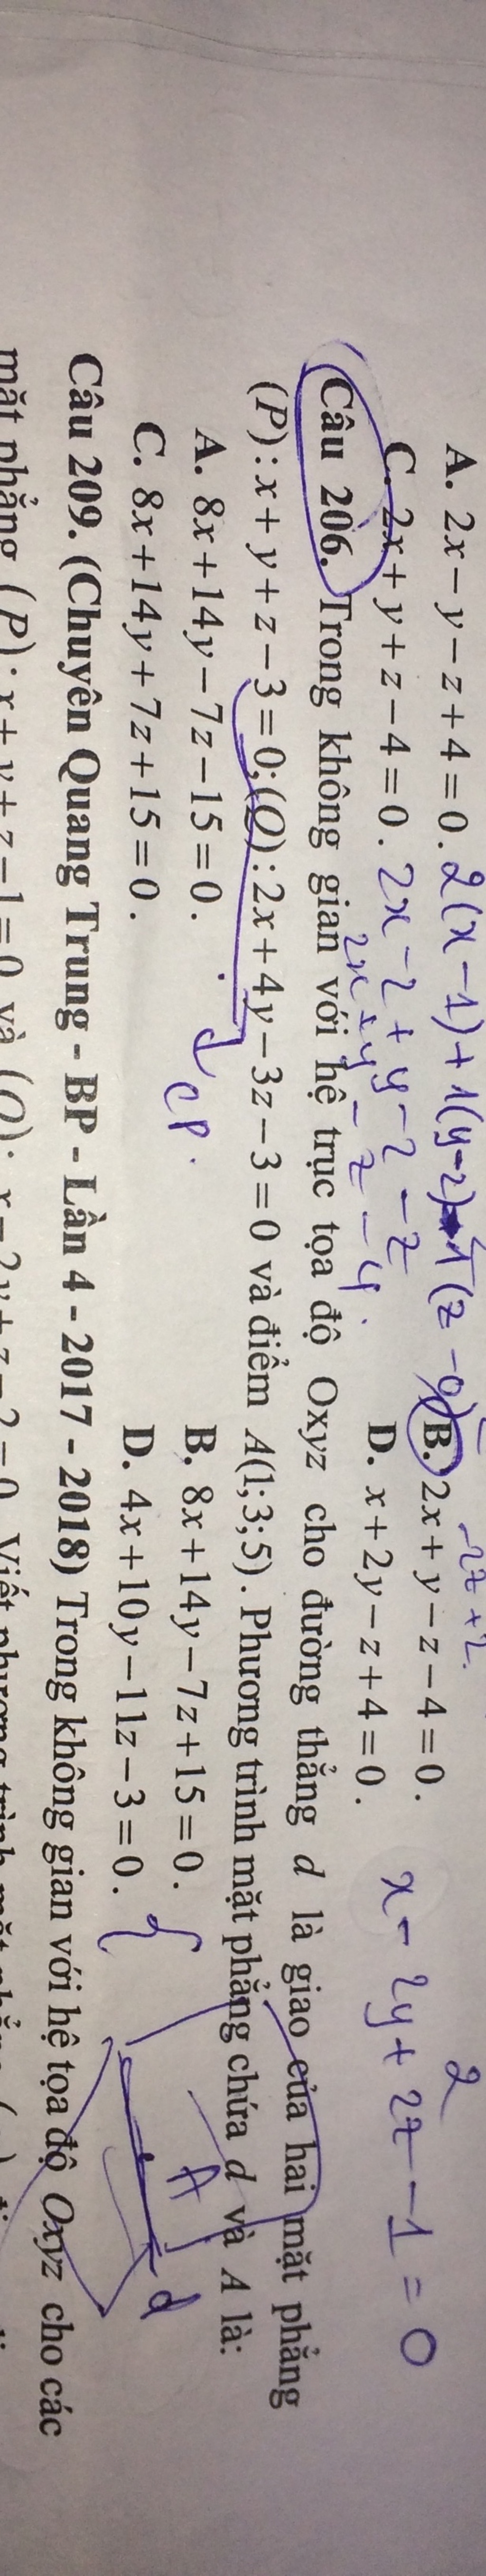 A. 2x − y − z + 4 = 0. 2(x − 1) + 1(y − 2) − 1(z − 0)
B. 2x + y − z − 4 = 0.
−2z + 2.
C. 2x + y + z − 4 = 0. 2x − 2 + y − 2 − z
D. x + 2y − z + 4 = 0.
2x + y − z − 4.
x − 2y + 2z − 1 = 0
2
Câu 206. Trong không gian với hệ trục tọa độ Oxyz cho đường thẳng d là giao của hai mặt phẳng
(P): x + y + z − 3 = 0; (Q): 2x + 4y − 3z − 3 = 0 và điểm A(1;3;5). Phương trình mặt phẳng chứa d và A là:
A. 8x + 14y − 7z − 15 = 0.
B. 8x + 14y − 7z + 15 = 0.
cp.
C. 8x + 14y + 7z + 15 = 0.
D. 4x + 10y − 11z − 3 = 0.
A
d
Câu 209. (Chuyên Quang Trung - BP - Lần 4 - 2017 - 2018) Trong không gian với hệ tọa độ Oxyz cho các
mặt phẳng (P): x + y + z − 1 = 0 và (Q): x − 2y + z − 2 = 0. Viết phương trình mặt phẳng